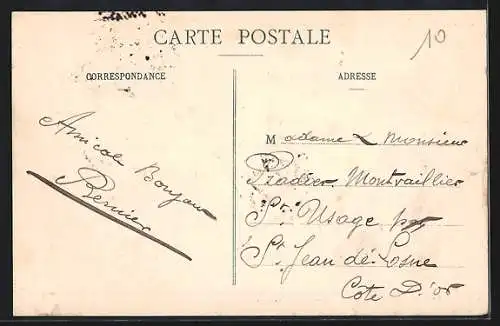 CARTE POSTALE
10
CORRESPONDANCE
ADRESSE
Amical Bonjour
Madame & Monsieur
Montraillier
St. Usage par
St Jean de Losne
Côte D'or